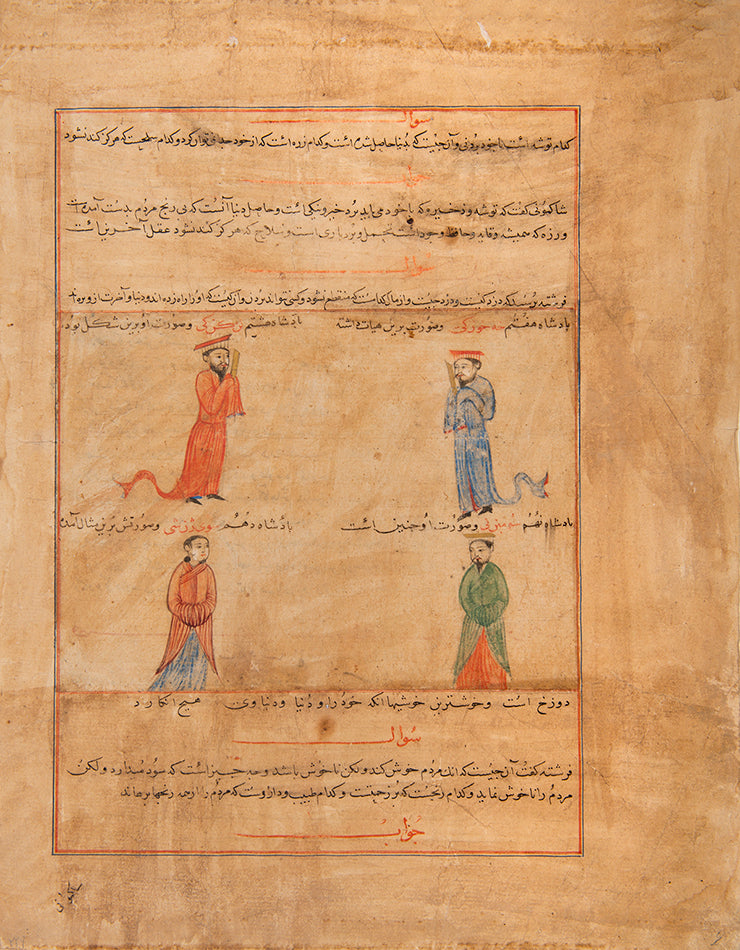 سوال
کدام توشه است با خود بردنی و آن چیست که بدنیا حاصل شده است و کدام زره است که از خود جدا نتوان کرد و کدام سلاحست که هرکز کند نشود
شاکمونی کفت که توشه و ذخیره که با خود می باید برد خیر و نیکی است و حاصل دنیا آنست که بی رنج مردم بدست آمده
و زره که همیشه وقایه و حافظ وجود است تحمل و بردباری است و سلاح که هرکز کند نشود عقل آخربین است
سوال
فرشته پرسید که دزد کیست و دزد چیست و از مال کدامست که منقطع نشود و کسی نتواند بردن و آن کیست که او را راه زده اند و دنیا و آخرت ازو برده
بادشاه هفتم وصورت برین هیات داشته
بادشاه هشتم وصورت او برین شکل بود
بادشاه نهم وصورت او چنین است
بادشاه دهم وصورتش برین مثال آمده
دوزخ است وخوشترین خوشیها انکه خود را و دنیا ودنیاوی هیچ انکارد
سوال
فرشته کفت آن چیست که انک مردم خوش کند ولکن ناخوش باشد وچه چیز است که سود میدارد ولکن
مردم را ناخوش نماید وکدام رنجست که بزرجست وکدام طبیب ودارو است که مردم را ازهمه رنجها برهاند
جواب